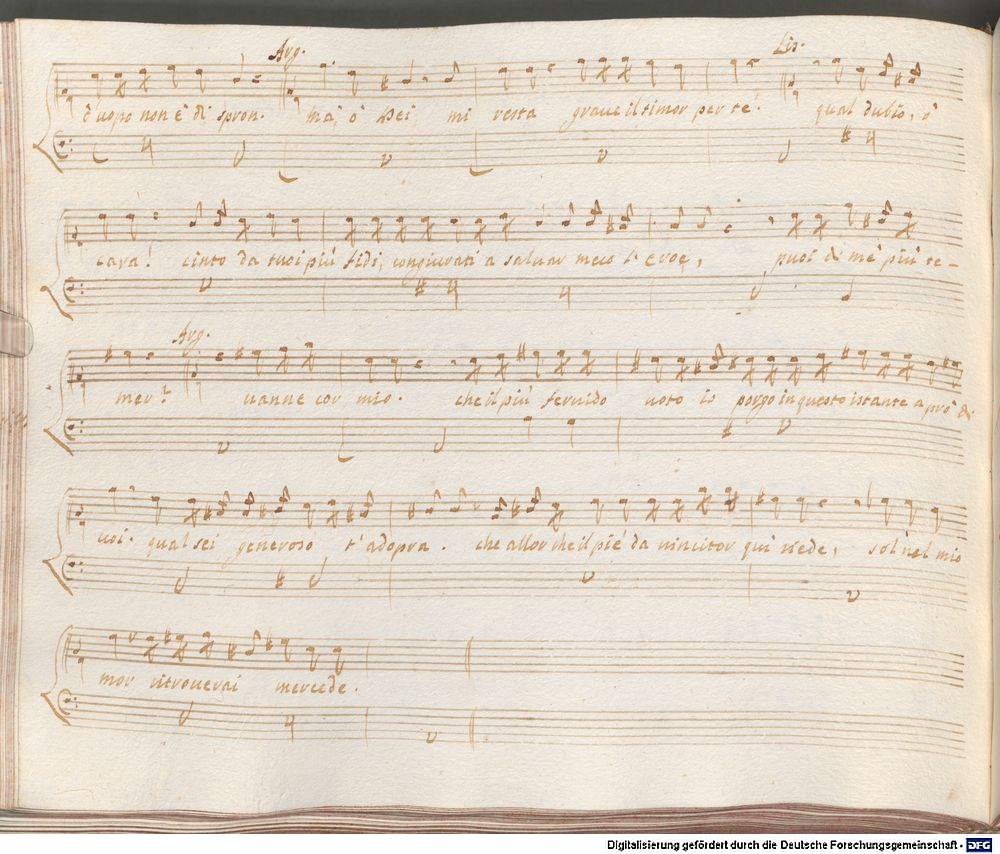 Arg. Lis.
d'uopo non è di spron. ma, ò Dei mi resta graue il timor per te! qual dubio, ò
cara! cinto da tuoi più fidi, congiurati a saluar meco l'Eroe, puoi di me più te-
Arg.
mer? uanne cor mio. che il più feruido uoto io porgo in questo istante a prò di
uoi. qual sei generoso t'adopra. che allor che il piè da uincitor quì riede, sol nel mio
mor ritrouerai mercede.
Digitalisierung gefördert durch die Deutsche Forschungsgemeinschaft - DFG